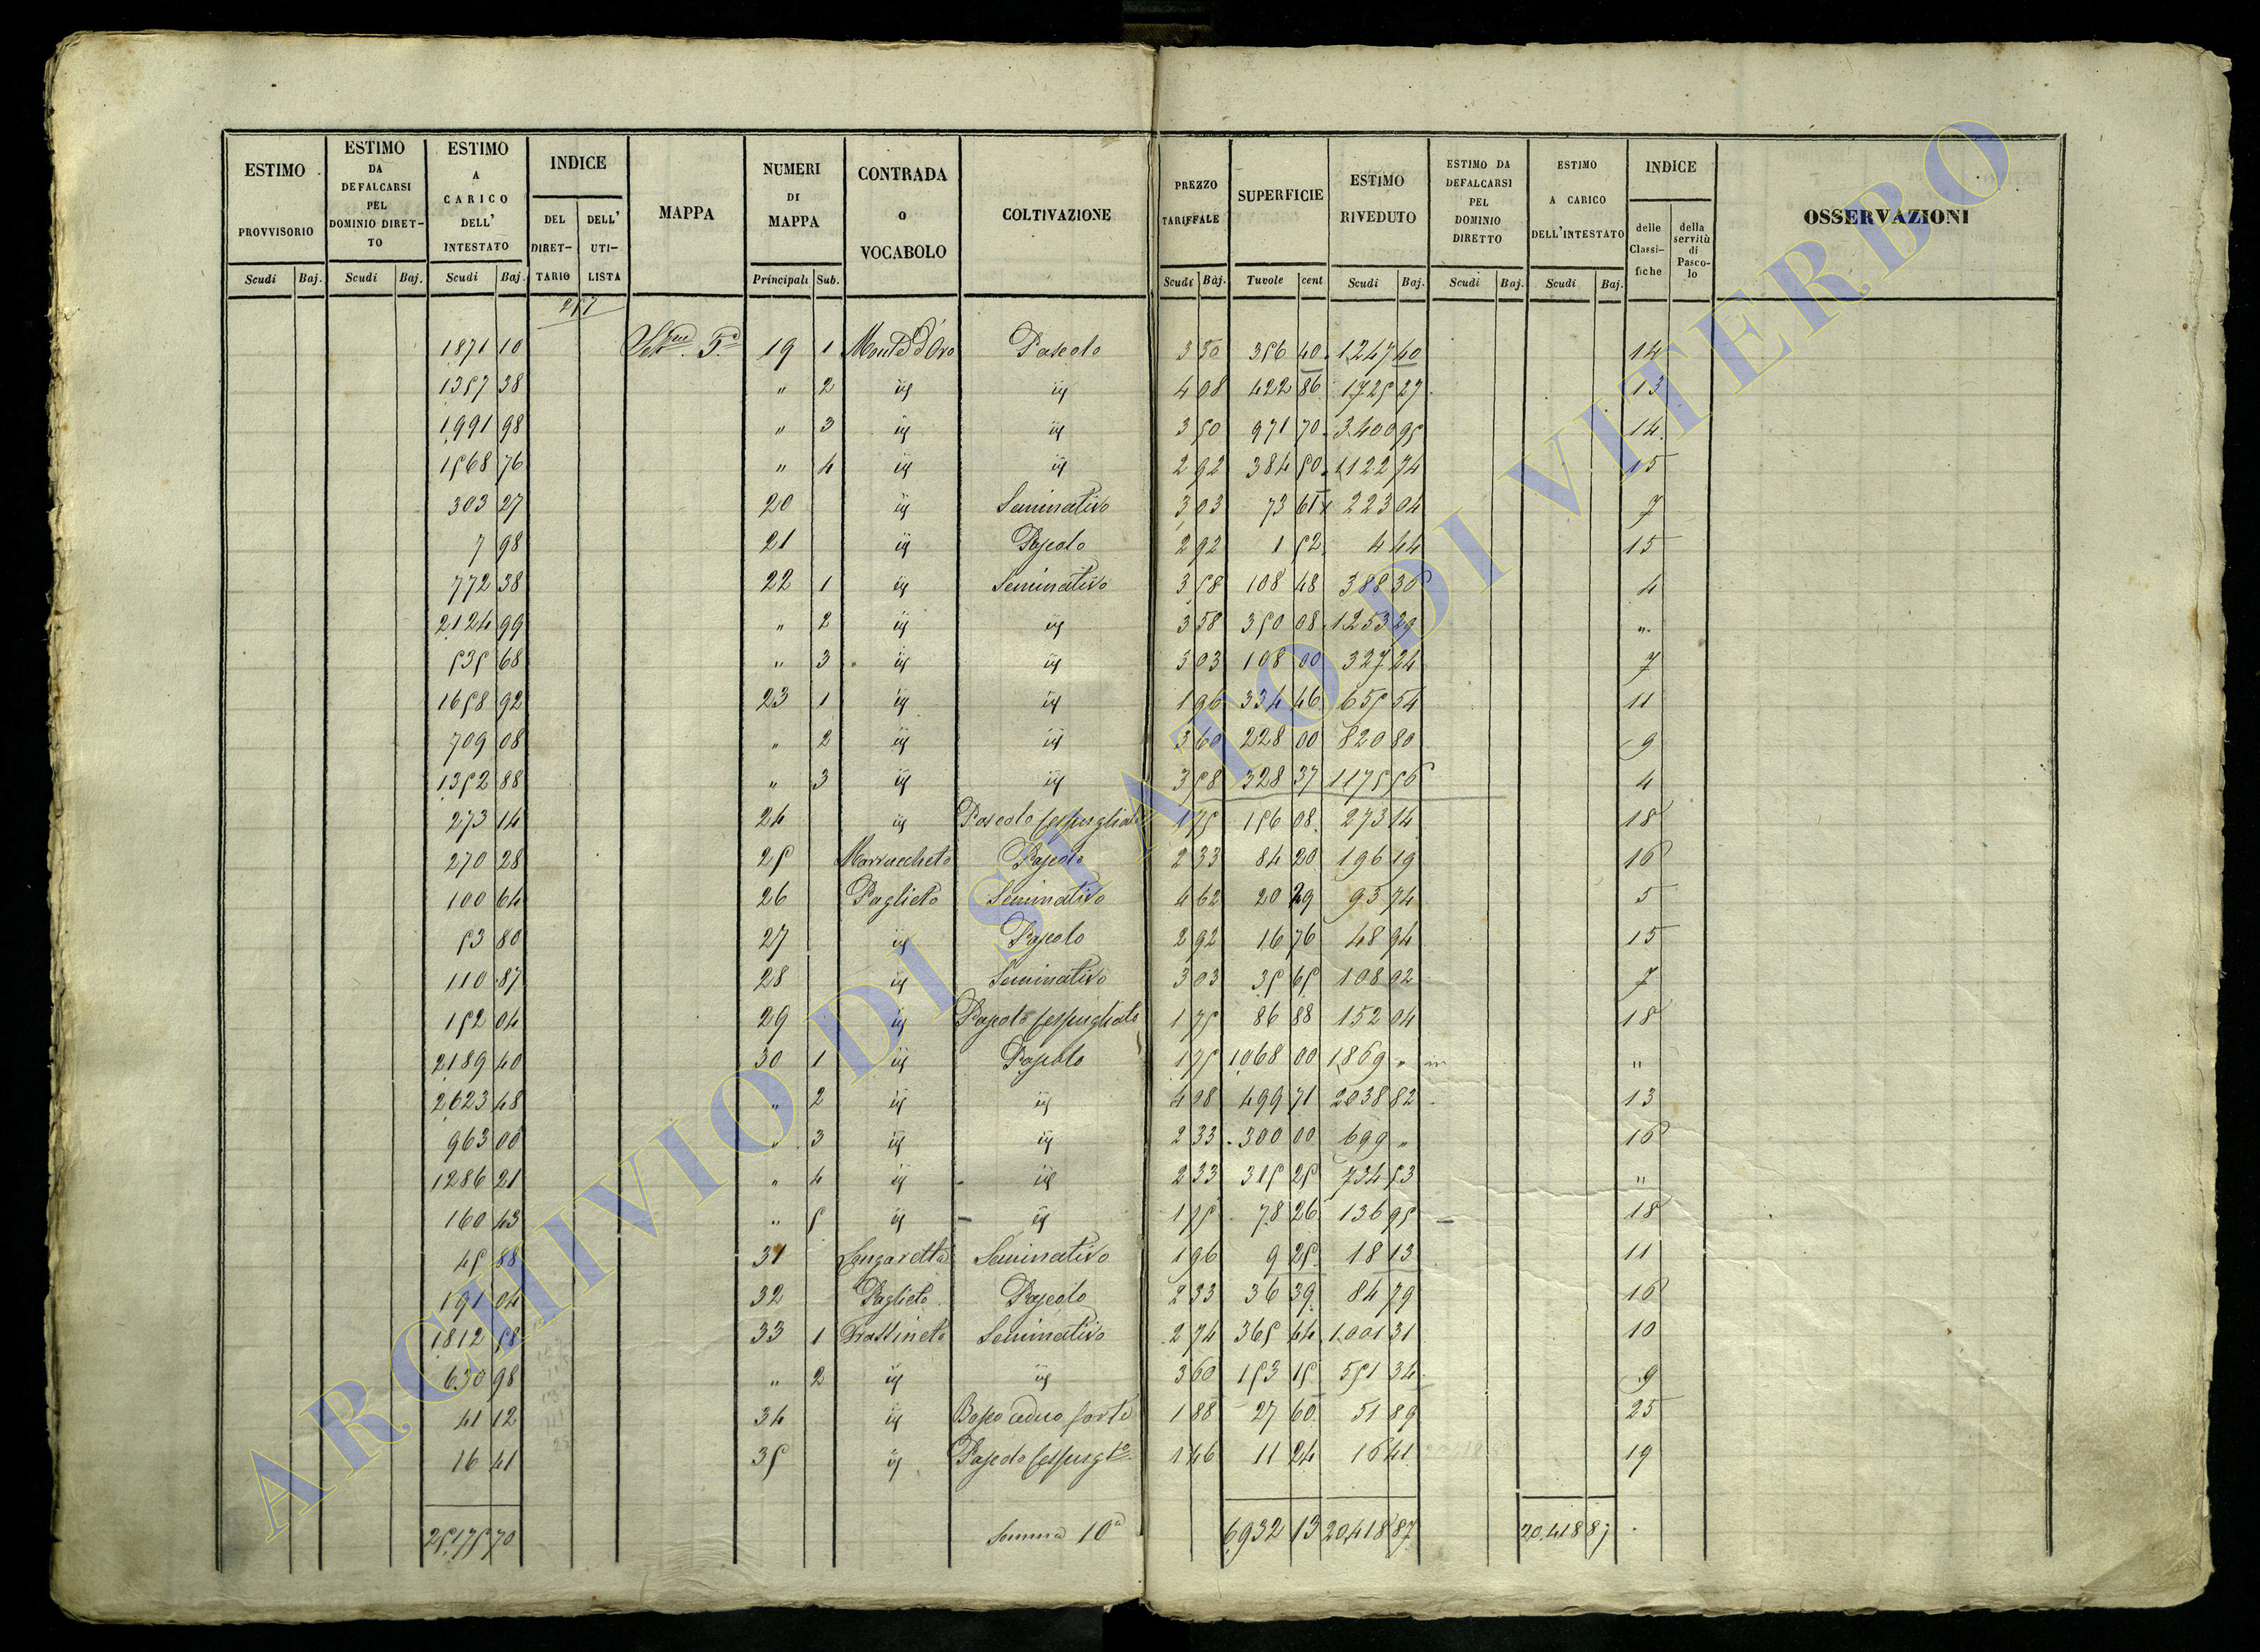 ESTIMO PROVVISORIO Scudi Baj. ESTIMO DA DEFALCARSI PEL DOMINIO DIRETTO Scudi Baj. ESTIMO A CARICO DELL' INTESTATO Scudi Baj. INDICE DEL DIRETTARIO DELL' UTILISTA MAPPA NUMERI DI MAPPA Principali Sub. CONTRADA o VOCABOLO COLTIVAZIONE PREZZO TARIFFALE Scudi Baj. SUPERFICIE Tavole cent ESTIMO RIVEDUTO Scudi Baj. ESTIMO DA DEFALCARSI PEL DOMINIO DIRETTO Scudi Baj. ESTIMO A CARICO DELL'INTESTATO Scudi Baj. INDICE delle Classifiche della servitù di Pascolo OSSERVAZIONI
257
1871 10 Sez. 5a 19 1 Monte d'Oro Pascolo 3 50 356 40 1247 40 14
1357 38 " 2 id id 4 08 422 86 1725 27 13
1991 98 " 3 id id 3 50 971 70 3400 95 14
1568 76 " 4 id id 2 92 384 50 1122 74 15
303 27 20 id Seminativo 3 03 73 61 223 04 7
7 98 21 id Pascolo 2 92 1 52 4 44 15
772 38 22 1 id Seminativo 3 58 108 48 388 36 4
2124 99 " 2 id id 3 58 350 08 1253 29 "
535 68 " 3 id id 3 03 108 00 327 24 7
1658 92 23 1 id id 1 96 334 46 655 54 11
709 08 " 2 id id 3 60 228 00 820 80 9
1352 88 " 3 id id 3 58 328 37 1175 56 4
273 14 24 id Pascolo cespugliato 1 75 156 08 273 14 18
270 28 25 Marrucheto Pascolo 2 33 84 20 196 19 16
100 64 26 Paglieto Seminativo 4 62 20 29 93 74 5
53 80 27 id Pascolo 2 92 16 76 48 94 15
110 87 28 id Seminativo 3 03 35 65 108 02 7
152 04 29 id Pascolo cespugliato 1 75 86 88 152 04 18
2189 40 30 1 id Pascolo 1 75 1068 00 1869 " "
2623 48 " 2 id id 4 08 499 71 2038 82 13
963 00 " 3 id id 2 33 300 00 699 " 16
1286 21 " 4 id id 2 33 315 25 734 53 "
160 43 " 5 id id 1 75 78 26 136 95 18
45 88 31 Lungaretta Seminativo 1 96 9 25 18 13 11
191 04 32 Paglieto Pascolo 2 33 36 39 84 79 16
1812 58 33 1 Frassineto Seminativo 2 74 365 44 1001 31 10
630 98 " 2 id id 3 60 153 15 551 34 9
41 12 34 id Bosco ceduo forte 1 88 27 60 51 89 25
16 41 35 id Pascolo cespugto 1 46 11 24 16 41 19
25,175 70 Somma 10a 6,932 13 20,418 87 20,418 87
ARCHIVIO DI STATO DI VITERBO